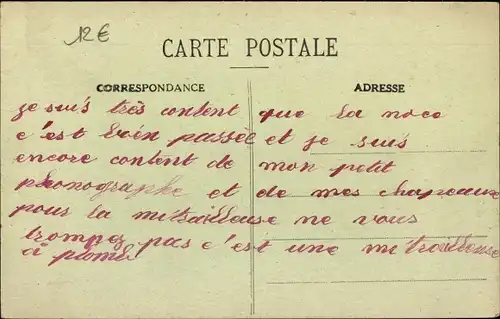 12€
CARTE POSTALE
CORRESPONDANCE
ADRESSE
je suis très content que la noce
c'est bien passée et je suis
encore content de mon petit
phonographe et de mes chapeaux
pour la mitrailleuse ne vous
trompez pas c'est une mitrailleuse
à plomb